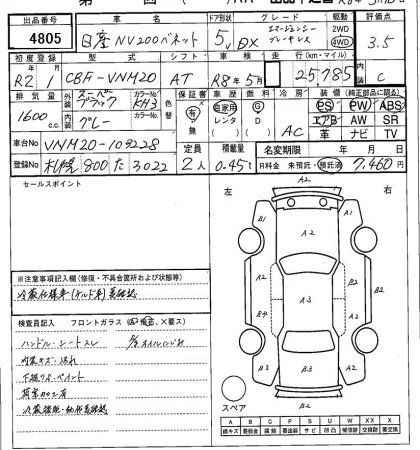 出品番号 車名 ドア形状 グレード 駆動 評価点
4805 日産 NV200バネット 5V DX エマージェンシーブレーキレス 2WD 4WD 3.5
初度登録 型式 シフト 車検 走行(km・マイル) 内装
R2/1 CBF-VNM20 AT R8年5月 25,785 C
排気量 外装 スーパーブラック カラーNo KH3 色替 保証書 車歴 燃料 冷房 装備(純正部品に限る)
1600c.c. 内装 グレー カラーNo 有 無 自家用 レンタ G D AC PS PW ABS
エアB AW SR
革 ナビ TV
車台No VNM20-109228 定員 積載量 名変期限 年 月 日
登録No 札幌 800 た 3022 2人 0.45t R料金 未預託・預託済 7,460円
セールスポイント
左 右
A2
B1 A2 A1
A2
A2 A2
B4 A3 B2
B3 A2 B2
B2
スペア
※注意事項記入欄(修復・不具合箇所および状態等)
検査員記入 フロントガラス(A・飛石、×要ス)
ハンドル・シートスレ
内装キズ・汚れ
下廻りサビ・ペイント
A B C P S U W X XX
線キズ 要板金 腐食 要塗装 サビ 凹凸 補修跡 交換跡 要交換